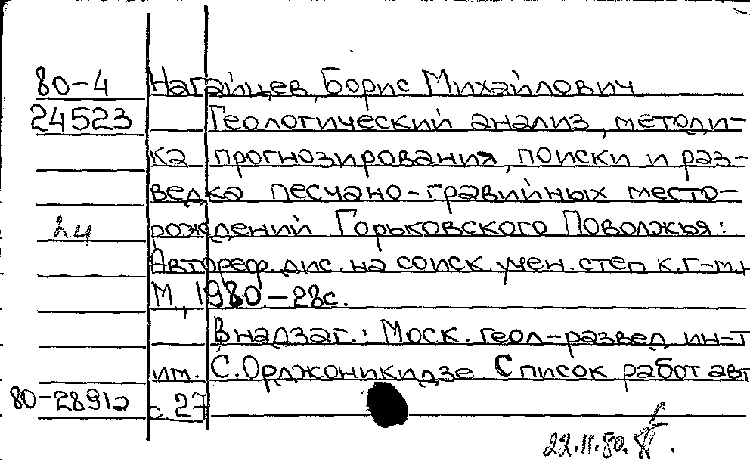 80-4 Нагайцев, Борис Михайлович
24523 Геологический анализ, методи-
ка прогнозирования, поиски и раз-
ведка песчано-гравийных место-
24 рождений Горьковского Поволжья:
Автореф. дис. на соиск. учен. степ. к.г-м.н
М, 1980-28с.
В надзаг.: Моск. геол-развед ин-т
им. С. Орджоникидзе Список работ авт
80-2891а с. 27
22.11.80.